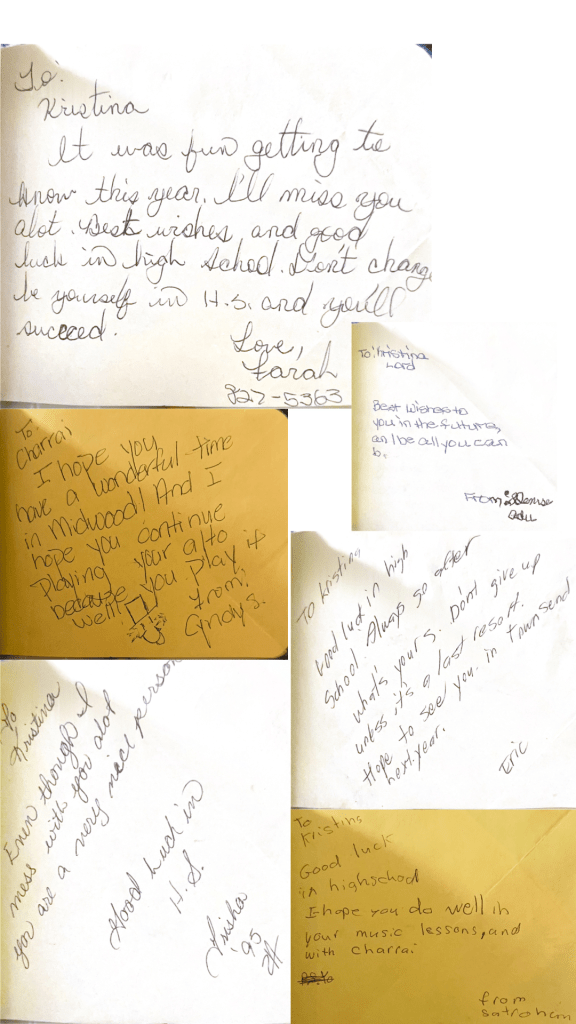 To:
Kristina
It was fun getting to
know this year. I'll miss you
alot. Best wishes, and good
luck in high school. Don't change
be yourself in H.S. and you'll
succeed.
Love,
Farah
827-5363
To: Kristina
Lord
Best wishes to
you in the future,
an l be all you can
b.
From: Denise
To:
Charrai
I hope you
have a wonderful time
in Midwood! And I
hope you continue
playing your alto
because you play it
well!
From:
Cindy S.
To Kristina
Good luck in high
school. Always go after
what's yours. Don't give up
unless it's a last resort.
Hope to see you in Townsend
next year.
Eric
To
Kristina
Even though I
mess with you alot
you are a very nice person
Good luck in
H.S.
95
To
Kristina
Good luck
in highschool
I hope you do well in
your music lessons, and
with charrai
from
satrohim